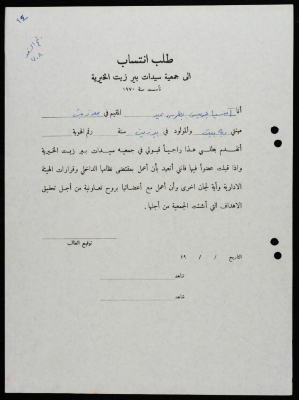 طلب انتساب
الى جمعية سيدات بير زيت الخيرية
تأسست سنة ١٩٧٠
أنا المقيم في بير زيت
مهنتي والمولود في بير زيت سنة رقم الهوية
أتقدم بطلبي هذا راجياً قبولي في جمعية سيدات بير زيت الخيرية
واذا قبلت عضواً فيها فانني أتعهد بأن أعمل بمقتضى نظامها الداخلي وقرارات الهيئة
الادارية وأية لجان اخرى وأن أعمل مع أعضائها بروح تعاونية من أجل تحقيق
الاهداف التي أنشئت الجمعية من أجلها.
توقيع الطالب
التاريخ / / ١٩
شاهد
شاهد